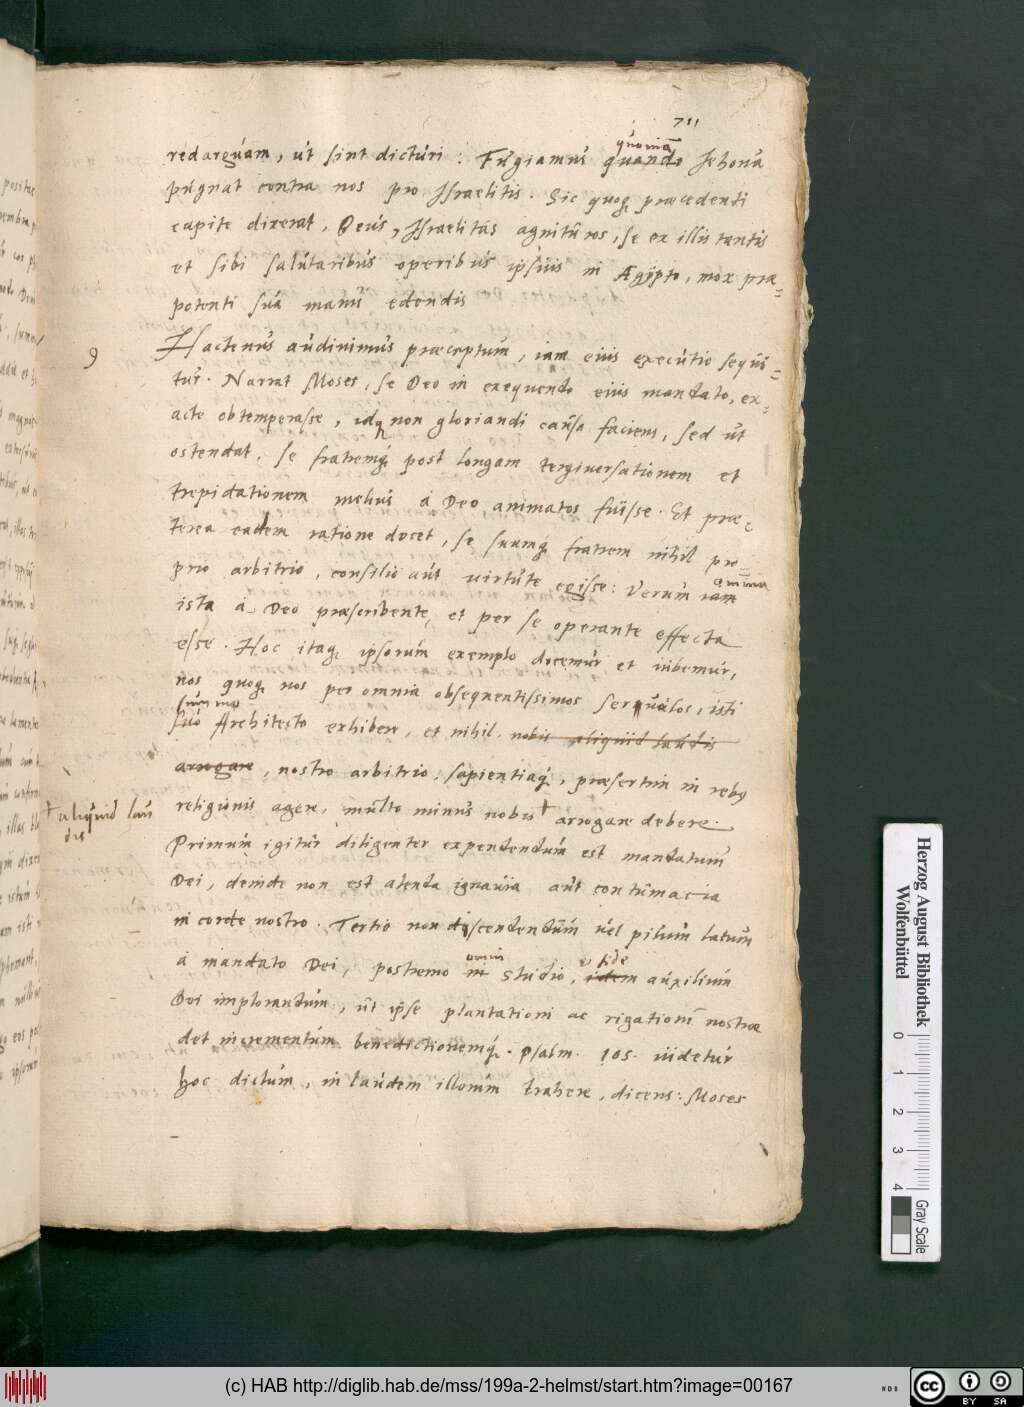 711
quoniã
redarguam, ut sint dicturi: Fugiamus quando Jehoua
pugnat contra nos pro Israelitis. Sic quoq; præcedenti
capite dixerat, Deus, Israelitas agnituros, se ex illis tantis
et sibi salutaribus operibus ipsius in Ægypto, mox præ=
potenti sua manu edendis
9 Hactenus audiuimus præceptum, iam eius executio sequi=
tur. Narrat Moses, se Deo in exequendo eius mandato, ex=
acte obtemperasse, idq; non gloriandi causa faciens, sed ut
ostendat, se fratremq; post longam tergiuersationem et
trepidationem melius a Deo animatos fuisse. Et præ=
terea eadem ratione docet, se suumq; fratrem nihil pro=
prio arbitrio, consilio aut virtute egisse: Verum iam
omnia
ista a Deo præscribente, et per se operante effecta
esse. Hoc itaq; ipsorum exemplo docemur et iubemur,
nos quoq; nos per omnia obsequentissimos seruulos, isti
summo
suo Architecto exhibere, et nihil nobis aliquid laudis
arrogare, nostro arbitrio, sapientiaq;, præsertim in rebus
religionis agere, multo minus nobis † arrogare debere.
† aliquid lau
dis
Primum igitur diligenter expendendum est mandatum
Dei, deinde non est alenda ignauia aut contumacia
in corde nostro. Tertio non discendendum uel pilum latum
a mandato Dei, postremo in studio, idem auxilium
omni
fide
Dei implorandum, ut ipse plantationi ac rigationi nostræ
det incrementum benedictionemq;. Psalm. 105. uidetur
hoc dictum, in laudem illorum trahere, dicens: Moses
Herzog August Bibliothek
Wolfenbüttel
0 1 2 3 4
Gray Scale
(c) HAB http://diglib.hab.de/mss/199a-2-helmst/start.htm?image=00167
cc BY SA